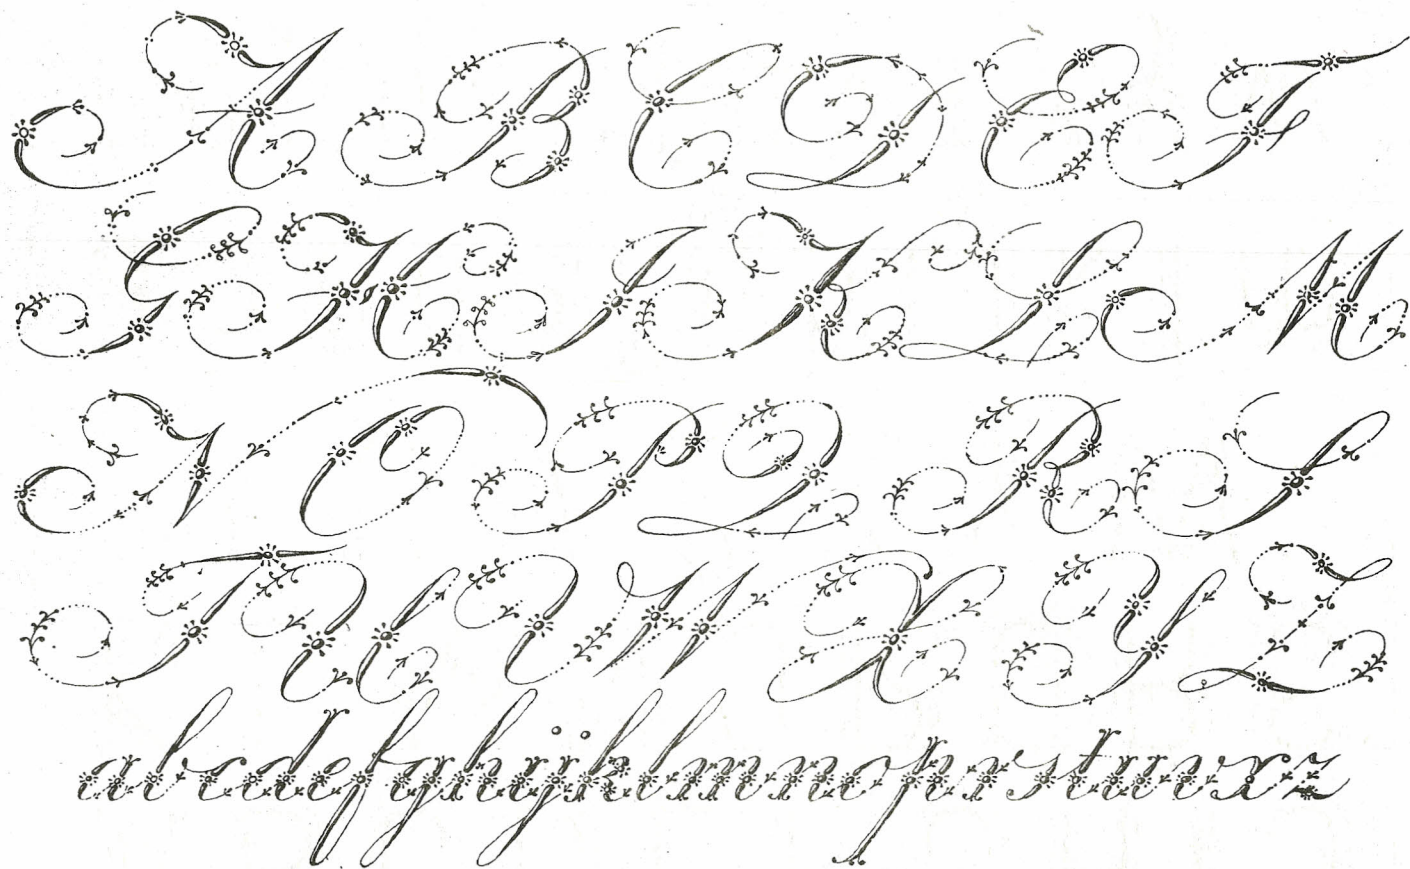 A B C D E F
G H I K L M
N O P Q R S
T U V W X Y Z
abcdefghijklmnoprstuvxz